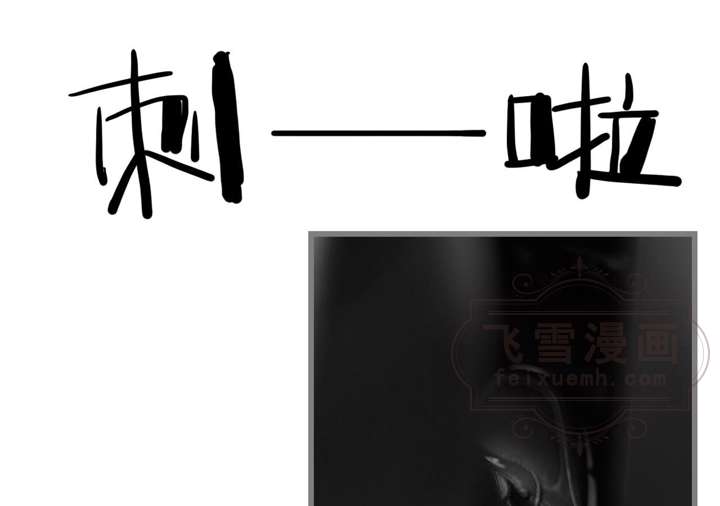 刺——啦
飞雪漫画
feixuemh.com